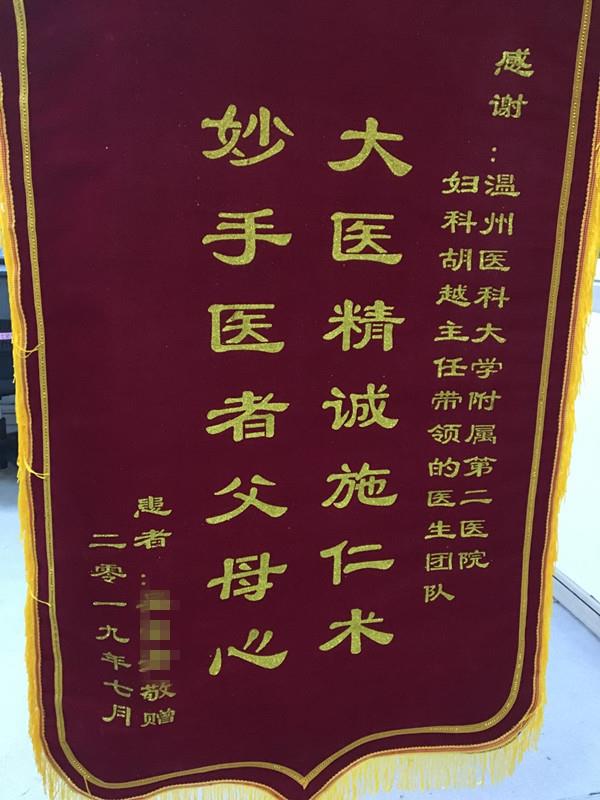 感谢：
温州医科大学附属第二医院
妇科胡越主任带领的医生团队
大医精诚施仁术
妙手医者父母心
患者：敬赠
二零一九年七月